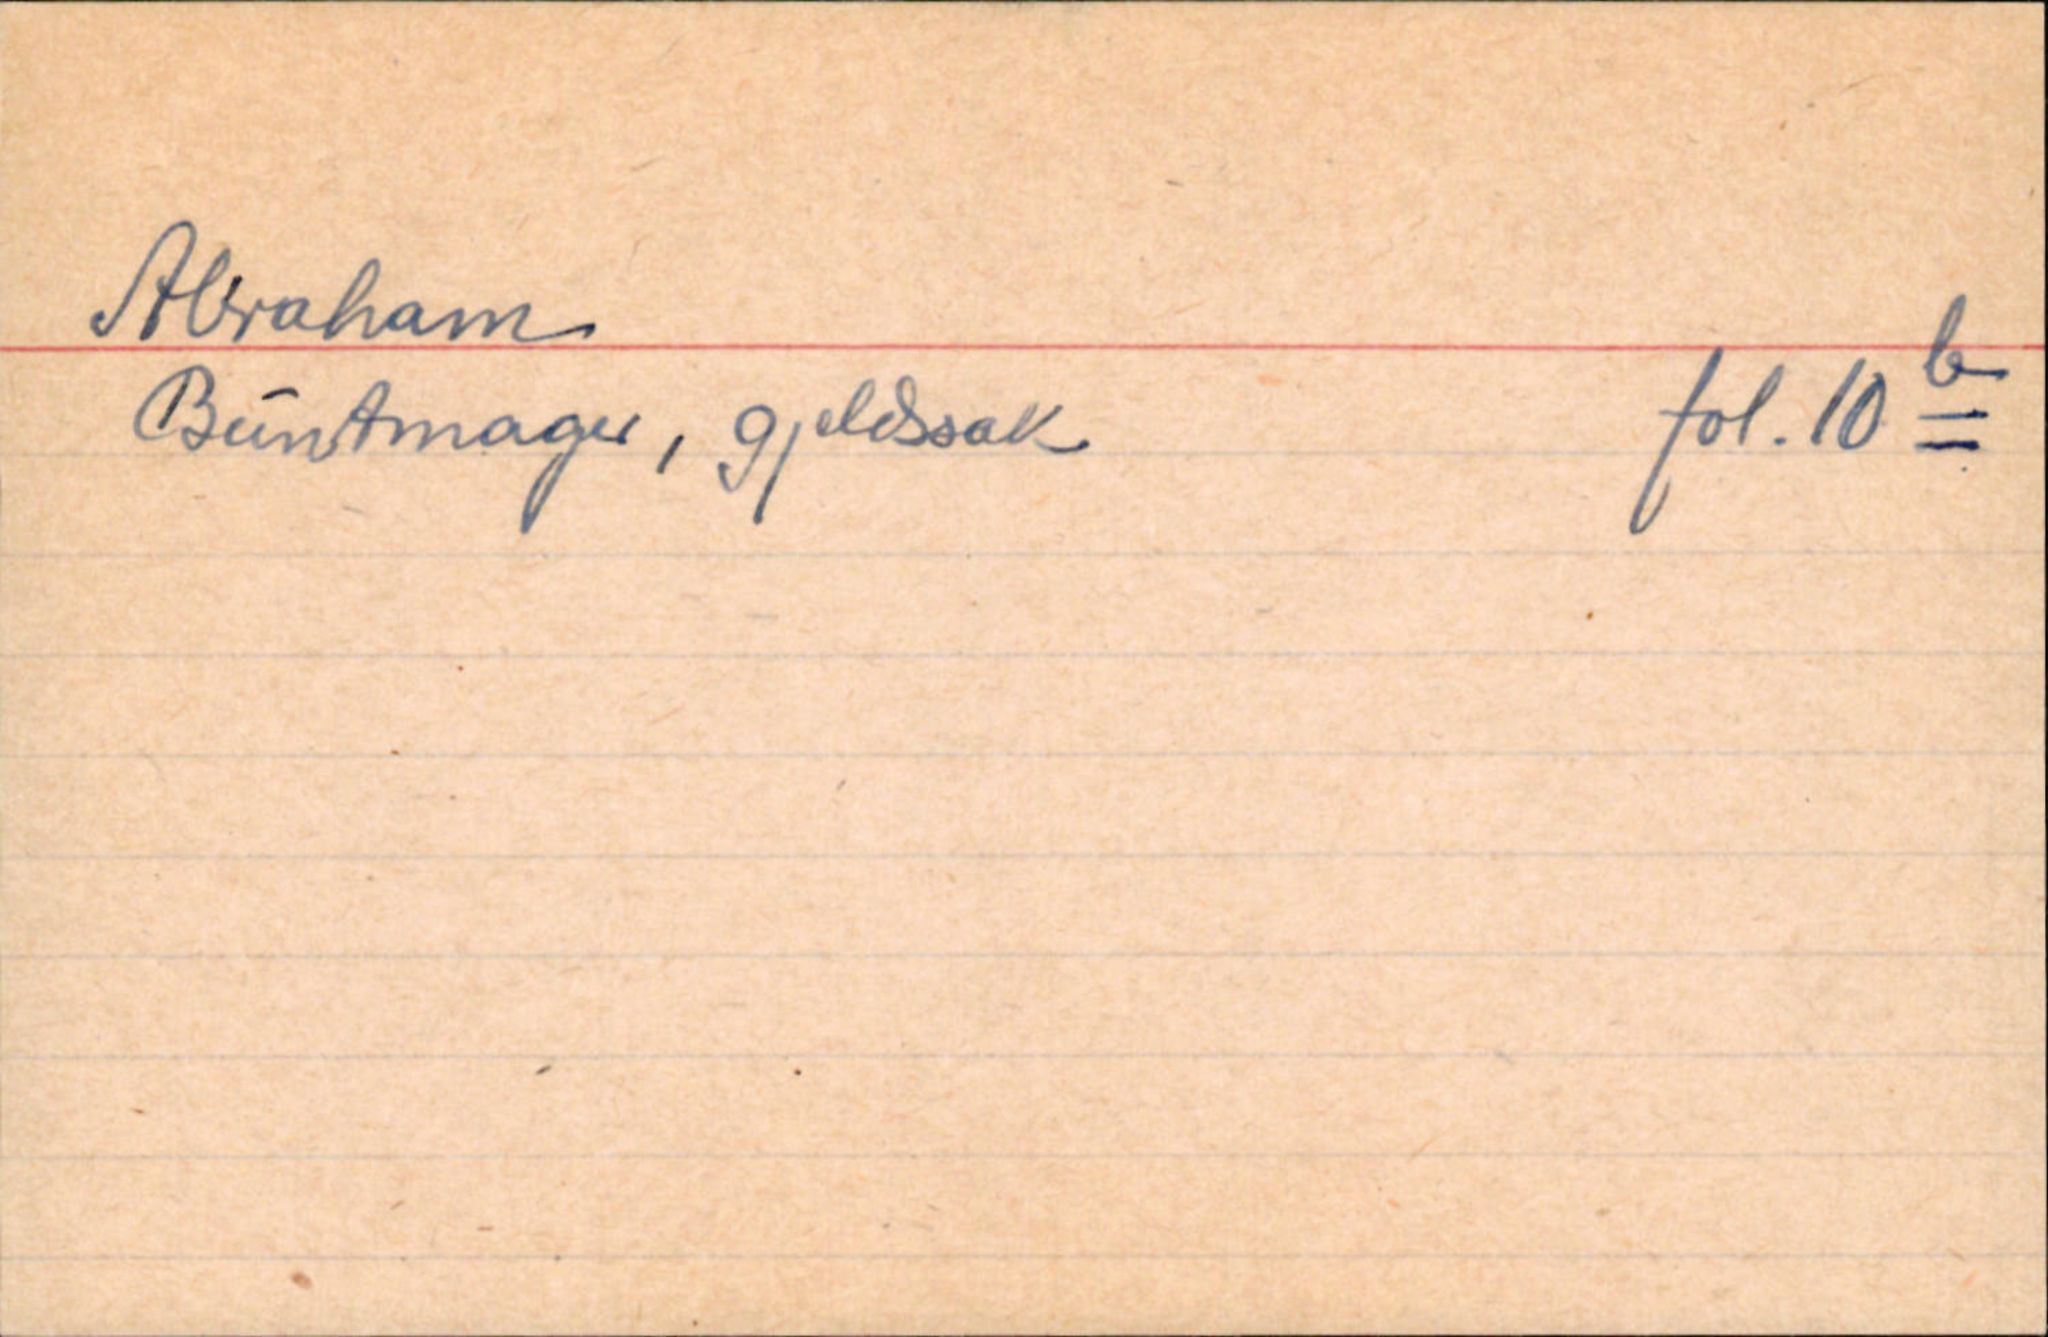 Abraham
Buntmager, gjeldssak fol. 10 b